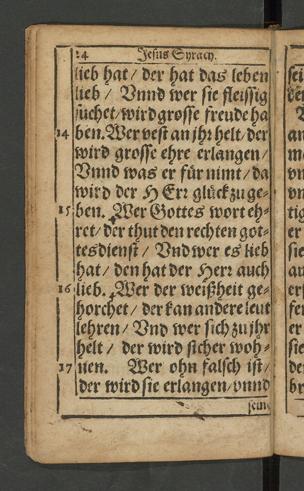 24 Jesus Syrach.
lieb hat / der hat das leben
lieb / Vnnd wer sie fleissig
suchet / wird grosse freude ha
14 ben. Wer vest an jhr helt / der
wird grosse ehre erlangen /
Vnnd was er für nimt / da
wird der HErr glück zu ge-
15 ben. Wer Gottes wort eh-
ret / der thut den rechten got-
tesdienst / Vnd wer es lieb
hat / den hat der Herr auch
16 lieb. Wer der weißheit ge-
horchet / der kan andere leut
lehren / Vnd wer sich zu jhr
helt / der wird sicher woh-
17 nen. Wer ohn falsch ist /
der wird sie erlangen / vnnd
sein